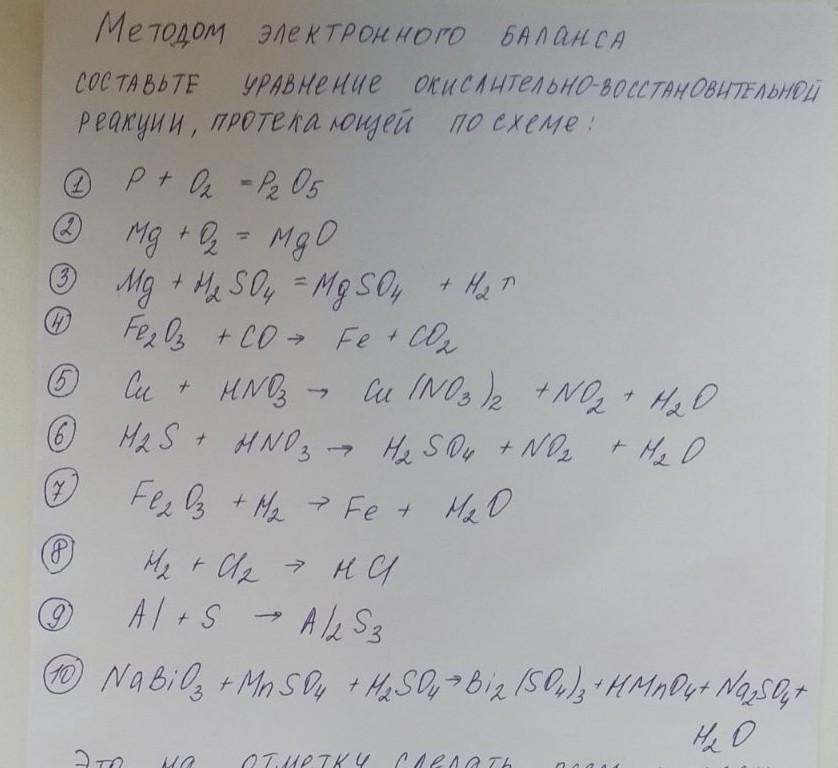 Методом электронного баланса
составьте уравнение окислительно-восстановительной
реакции, протекающей по схеме:
① P + O₂ = P₂O₅
② Mg + O₂ = MgO
③ Mg + H₂SO₄ = MgSO₄ + H₂↑
④ Fe₂O₃ + CO → Fe + CO₂
⑤ Cu + HNO₃ → Cu(NO₃)₂ + NO₂ + H₂O
⑥ H₂S + HNO₃ → H₂SO₄ + NO₂ + H₂O
⑦ Fe₂O₃ + H₂ → Fe + H₂O
⑧ H₂ + Cl₂ → HCl
⑨ Al + S → Al₂S₃
⑩ NaBiO₃ + MnSO₄ + H₂SO₄ → Bi₂(SO₄)₃ + HMnO₄ + Na₂SO₄ +
H₂O
Это на отметку сделать